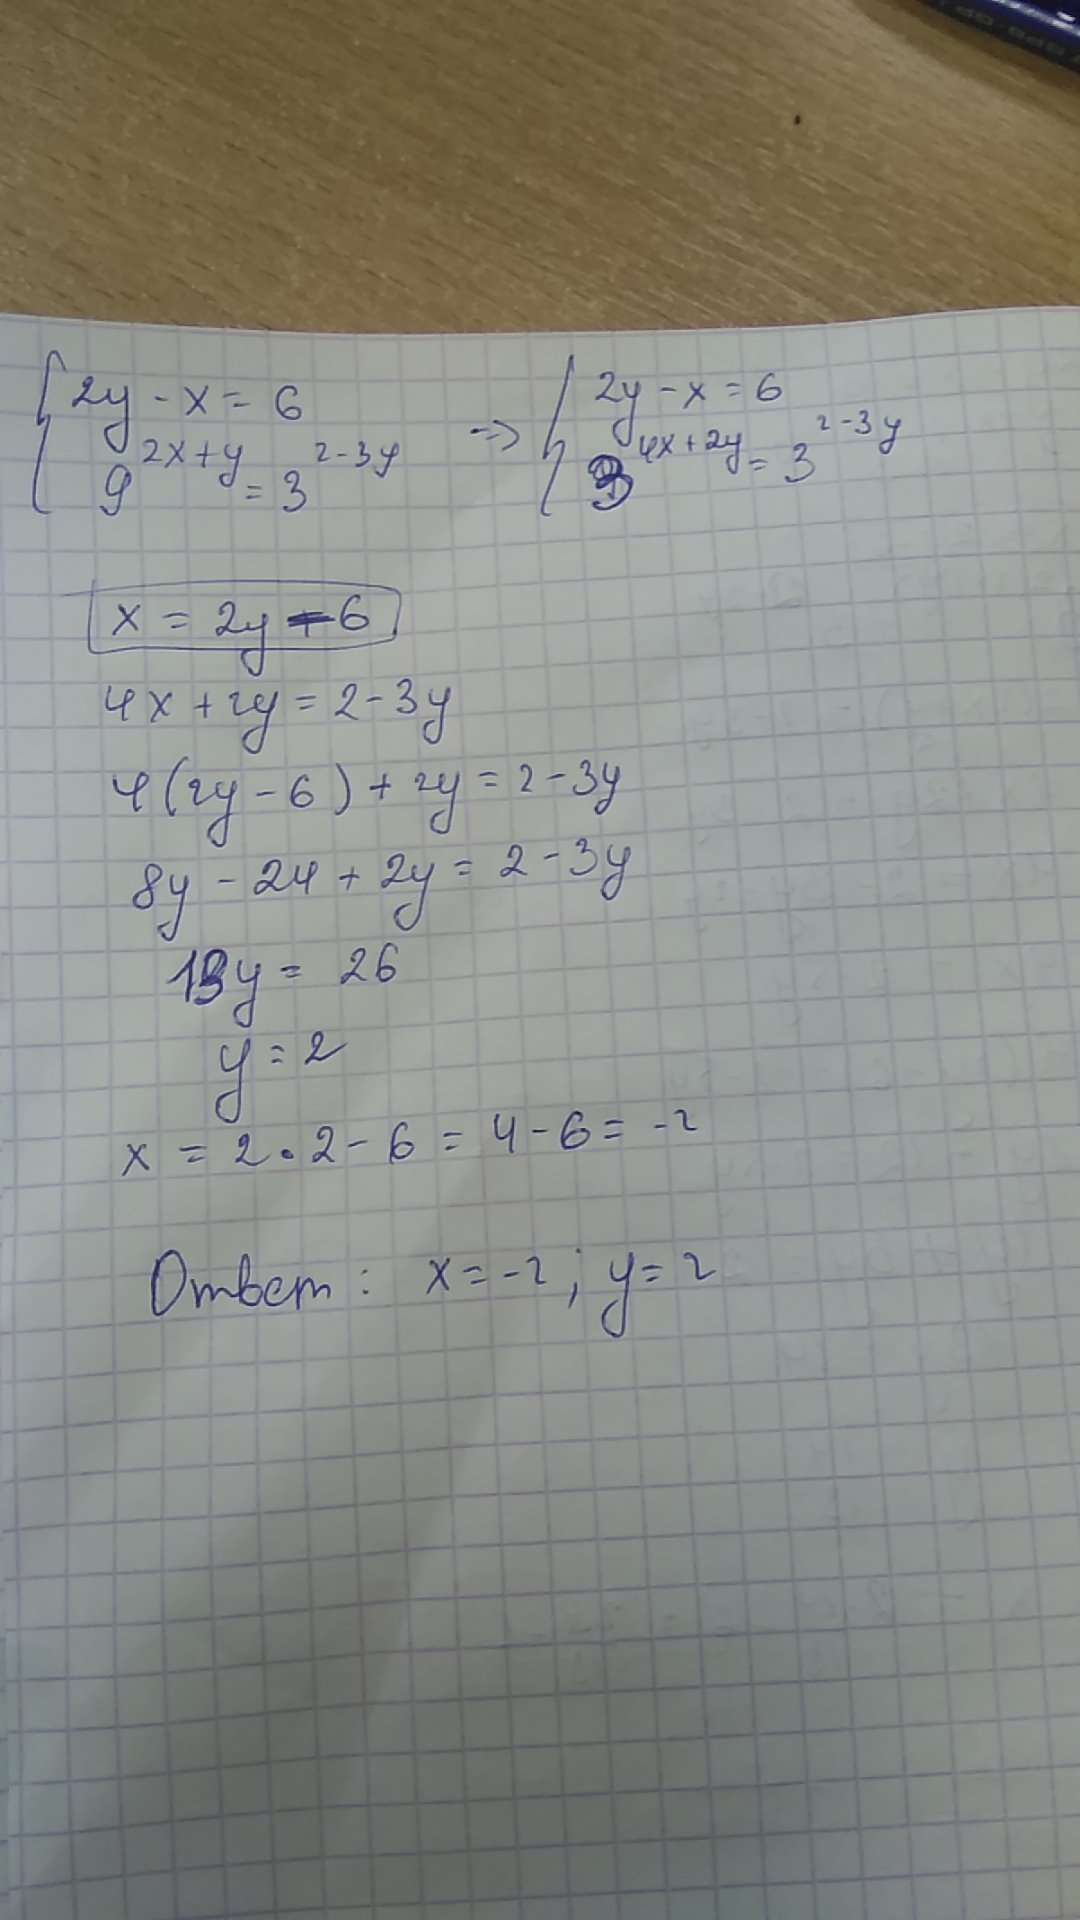 { 2y - x = 6 => { 2y - x = 6
9^{2x+y} = 3^{2-3y} 3^{4x+2y} = 3^{2-3y}
x = 2y - 6
4x + 2y = 2 - 3y
4(2y - 6) + 2y = 2 - 3y
8y - 24 + 2y = 2 - 3y
13y = 26
y = 2
x = 2 · 2 - 6 = 4 - 6 = -2
Ответ: x = -2; y = 2